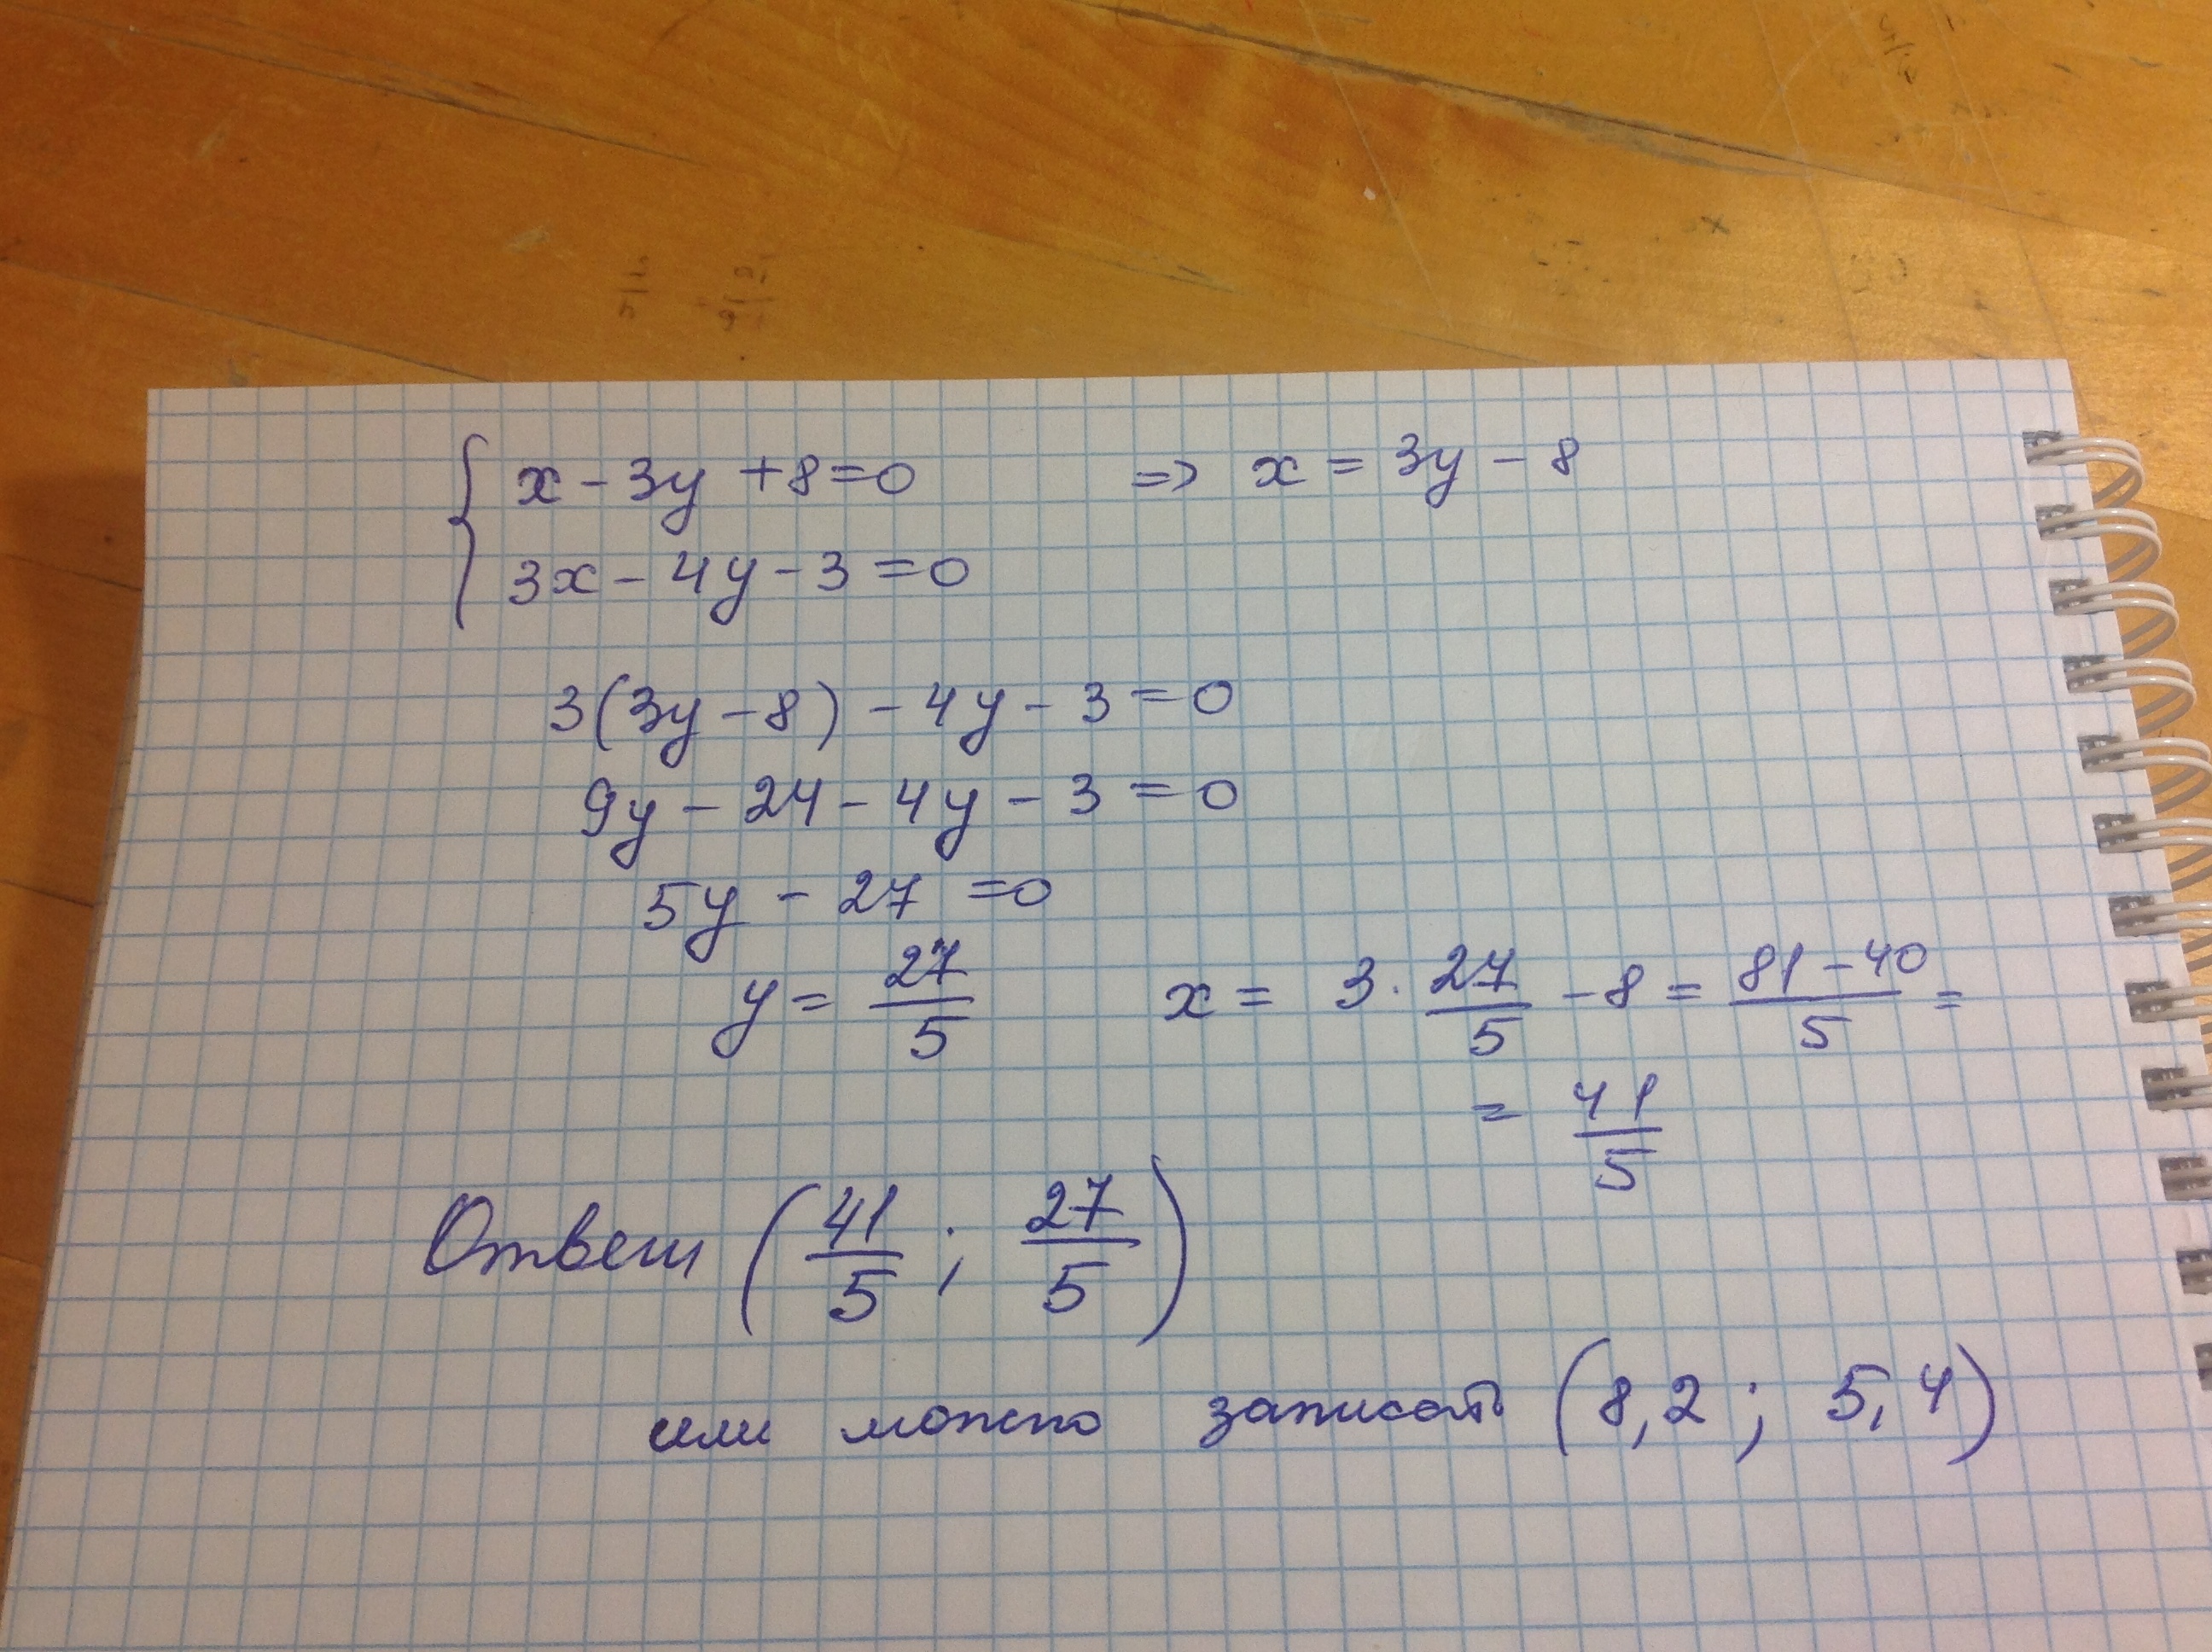 { x - 3y + 8 = 0 => x = 3y - 8
3x - 4y - 3 = 0
3(3y - 8) - 4y - 3 = 0
9y - 24 - 4y - 3 = 0
5y - 27 = 0
y = 27/5 x = 3 · 27/5 - 8 = 81 - 40/5 =
= 41/5
Ответ (41/5 ; 27/5)
или можно записать (8,2 ; 5,4)